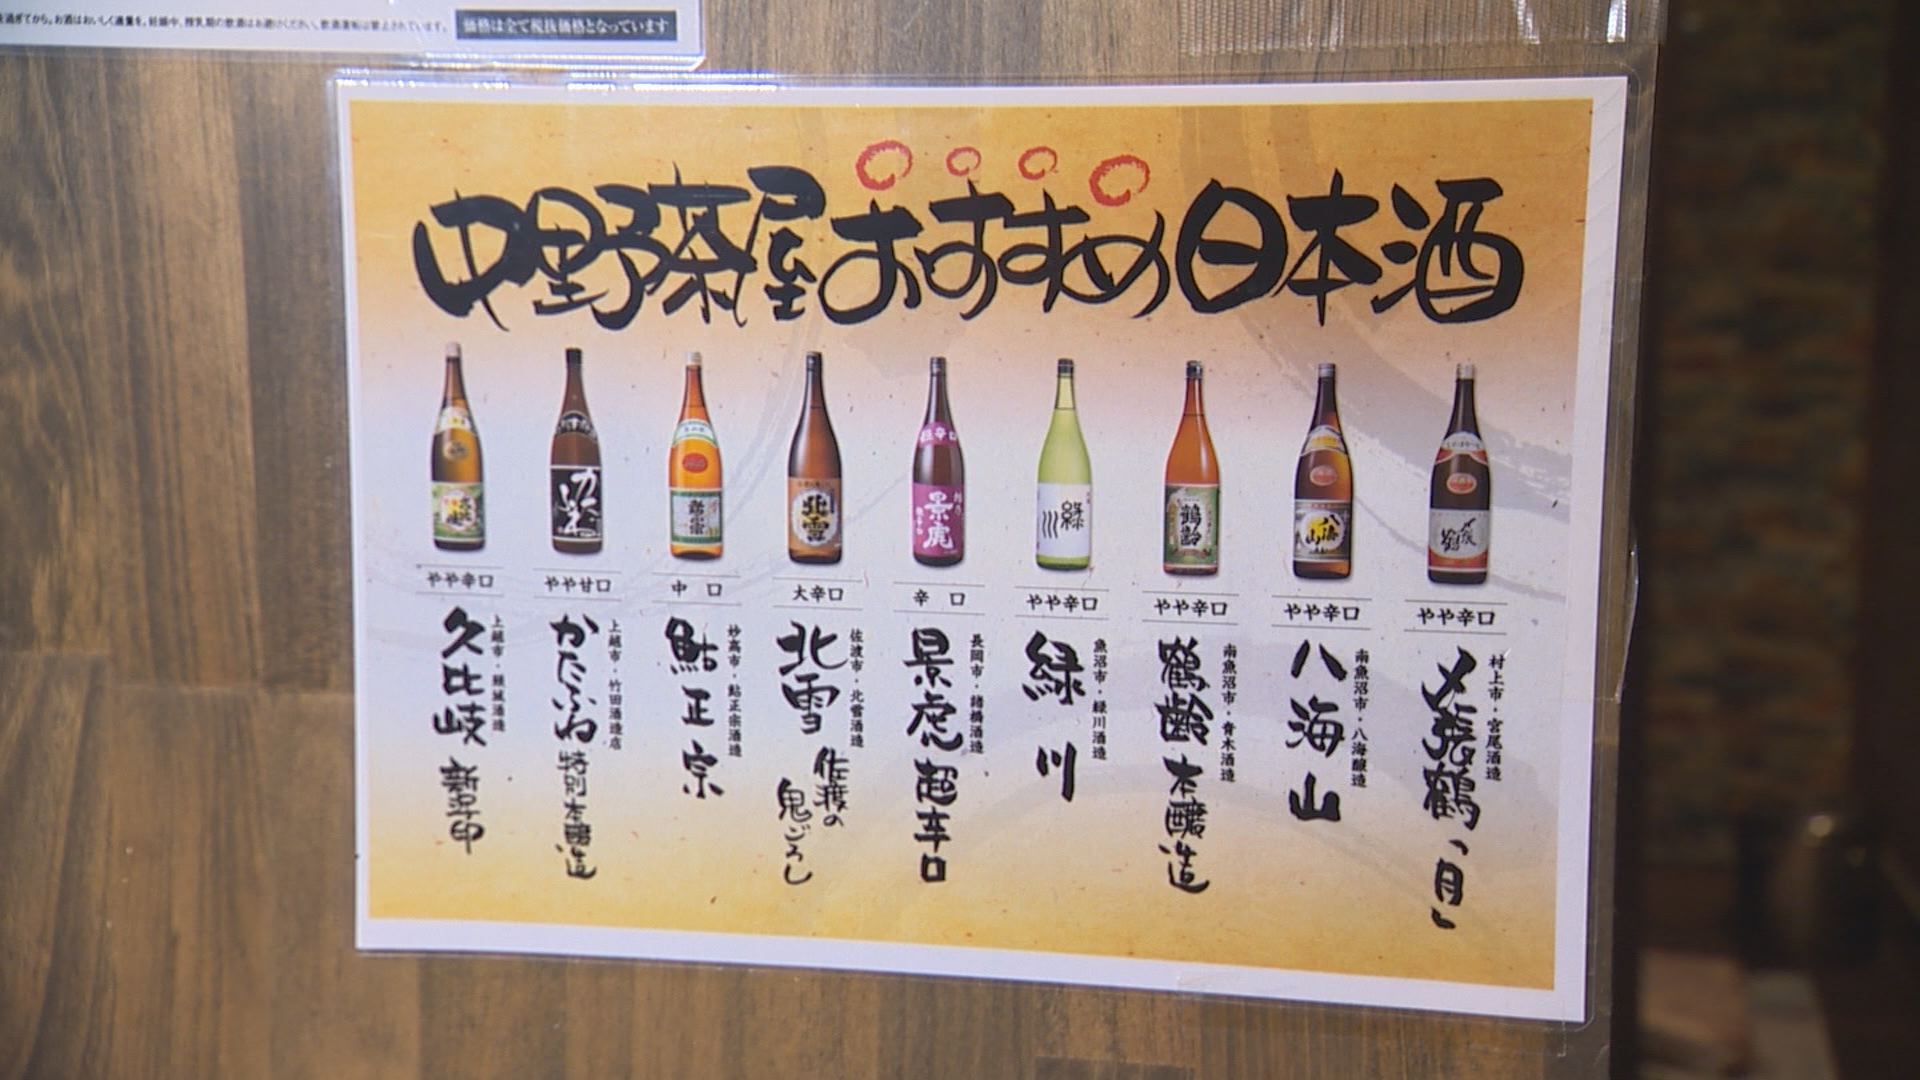 過ぎてから。お酒はおいしく適量を。妊娠中、授乳期の飲酒はお避けください。飲酒運転は禁止されています。
価格は全て税抜価格となっています
中野茶屋おすすめ日本酒
やや辛口
上越市・頚城酒造
久比岐 新早印
やや甘口
上越市・竹田酒造店
かたふね 特別本醸造
中口
妙高市・鮎正宗酒造
鮎正宗
大辛口
佐渡市・北雪酒造
北雪 佐渡の鬼ごろし
北雪
辛口
長岡市・諸橋酒造
景虎 超辛口
超辛口
景虎
やや辛口
魚沼市・緑川酒造
緑川
緑川
やや辛口
南魚沼市・青木酒造
鶴齢 本醸造
鶴齢
やや辛口
南魚沼市・八海醸造
八海山
八海山
やや辛口
村上市・宮尾酒造
〆張鶴「月」
〆張鶴